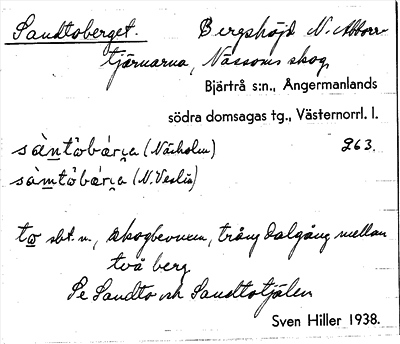 Sandtoberget. Bergshöjd N. Abborr-
tjärnarna, Nässoms skog,
Bjärtrå s:n., Ångermanlands
södra domsagas tg., Västernorrl. l.
(Näsholm) 263.
(N. Veslis)
to sbst. n., skogbevuxen, trång dalgång mellan
två berg
Se Sandto och Sandtotjälen
Sven Hiller 1938.